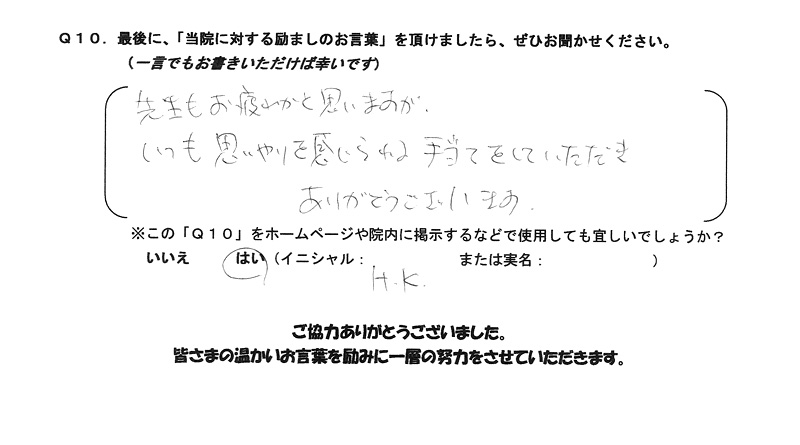 Q10．最後に、「当院に対する励ましのお言葉」を頂けましたら、ぜひお聞かせください。
（一言でもお書きいただけば幸いです）
先生もお疲れかと思いますが、
いつも思いやりを感じられる手当てをしていただき
ありがとうございます。
※この「Q10」をホームページや院内に掲示するなどで使用しても宜しいでしょうか？
いいえ　はい（イニシャル：　または実名：　）
H.K.
ご協力ありがとうございました。
皆さまの温かいお言葉を励みに一層の努力をさせていただきます。